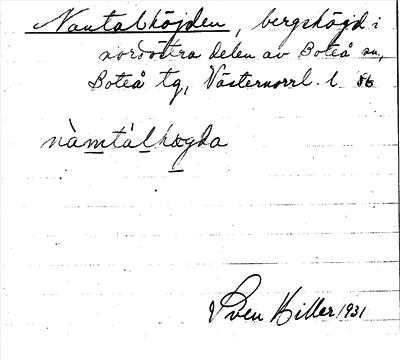 Namtalhöjden, bergshöjd i
nordöstra delen av Boteå sn,
Boteå tg, Västernorrl. l. 56
nàmtálhøgda
Sven Hiller 1931